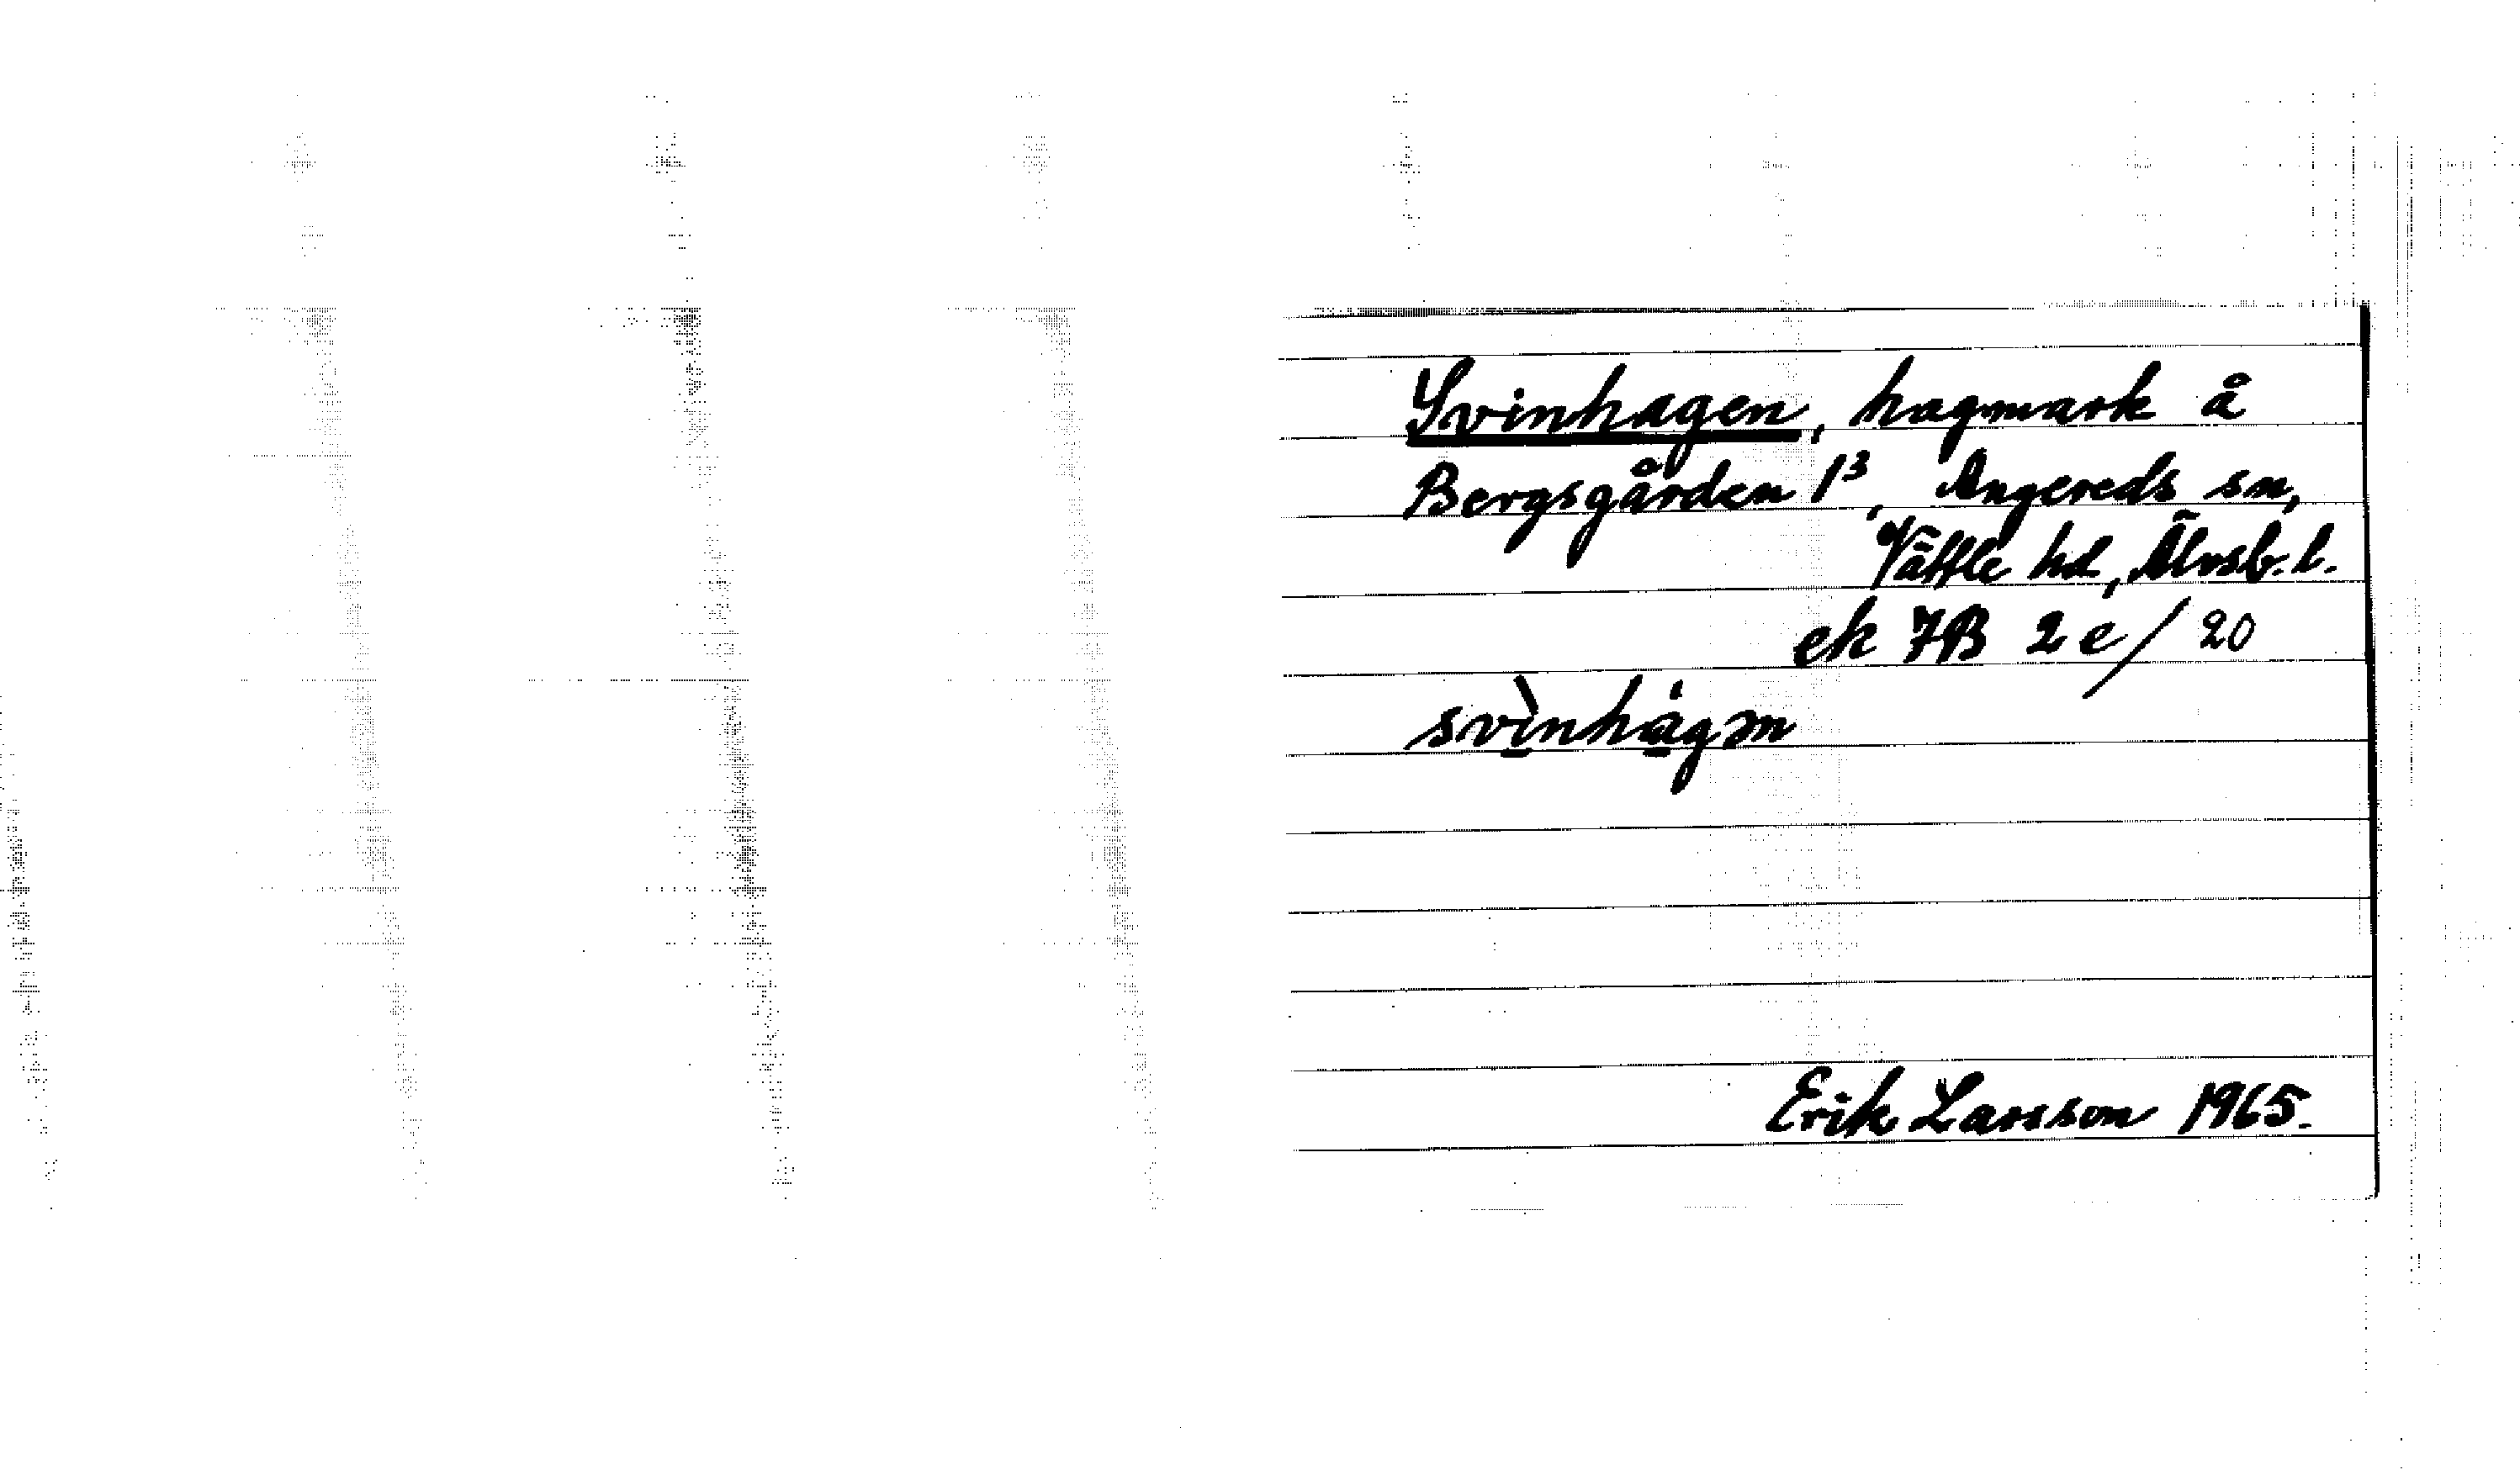 Svinhagen, hagmark å
Bergsgården 1³, Angereds sn,
Vättle hd, Älvsb. l.
ek 7B 2e/20
svì̲nhȧ̲gən
Erik Larsson 1965.